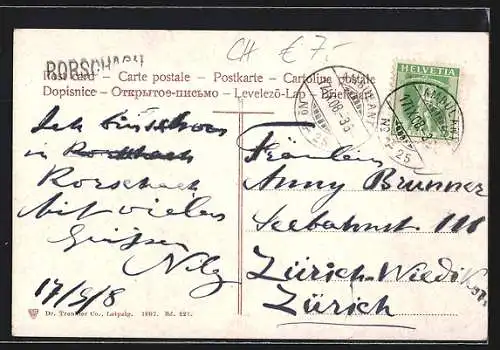 RORSCHACH
CH € 7.-
Post card – Carte postale – Postkarte – Cartolina postale
Dopisnice – Открытое-письмо – Levelezö-Lap – Briefkaart
HELVETIA
AMBULANT
No 25
AMBULANT
No 25
Ich bin schon
in
Rorschach
Mit vielen
Grüssen
17/9/8
Fräulein
Anny Brunner
Seebahnst 111
Zürich-Wiedikon
Zürich
Dr. Trenkler Co., Leipzig. 1907.